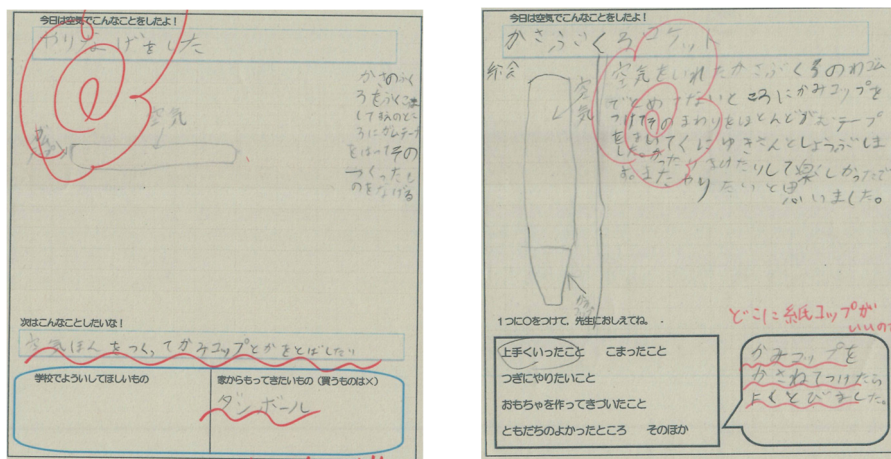 今日は空気でこんなことをしたよ！
やりなげをした
空気
かさのふく
ろをふくこま
して玉のとこ
ろにガムテープ
をはってその
つくったも
のをなげる
次はこんなことしたいな！
空気ほうをつくってかみコップとかをとばしたい
学校でよういしてほしいもの
家からもってきたいもの（買うものは×）
ダンボール
今日は空気でこんなことをしたよ！
かさぶくろロケット
空気
空気をいれたかさぶくろのわゴム
でとめてないところにかみコップを
つけて
まわりをほとんど
テープ
をまいてくにゆきさんとしょうぶしま
した。かったりまけたりして楽しかったで
す。またやりたいと思いました。
1つに○をつけて，先生におしえてね。
どこに紙コップが
いいの
上手くいったこと　こまったこと
つぎにやりたいこと
おもちゃを作ってきづいたこと
ともだちのよかったところ　そのほか
かみコップを
かさねてつけたら
よくとびました。